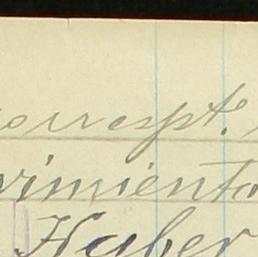 orrespt.
vimiento
Haber